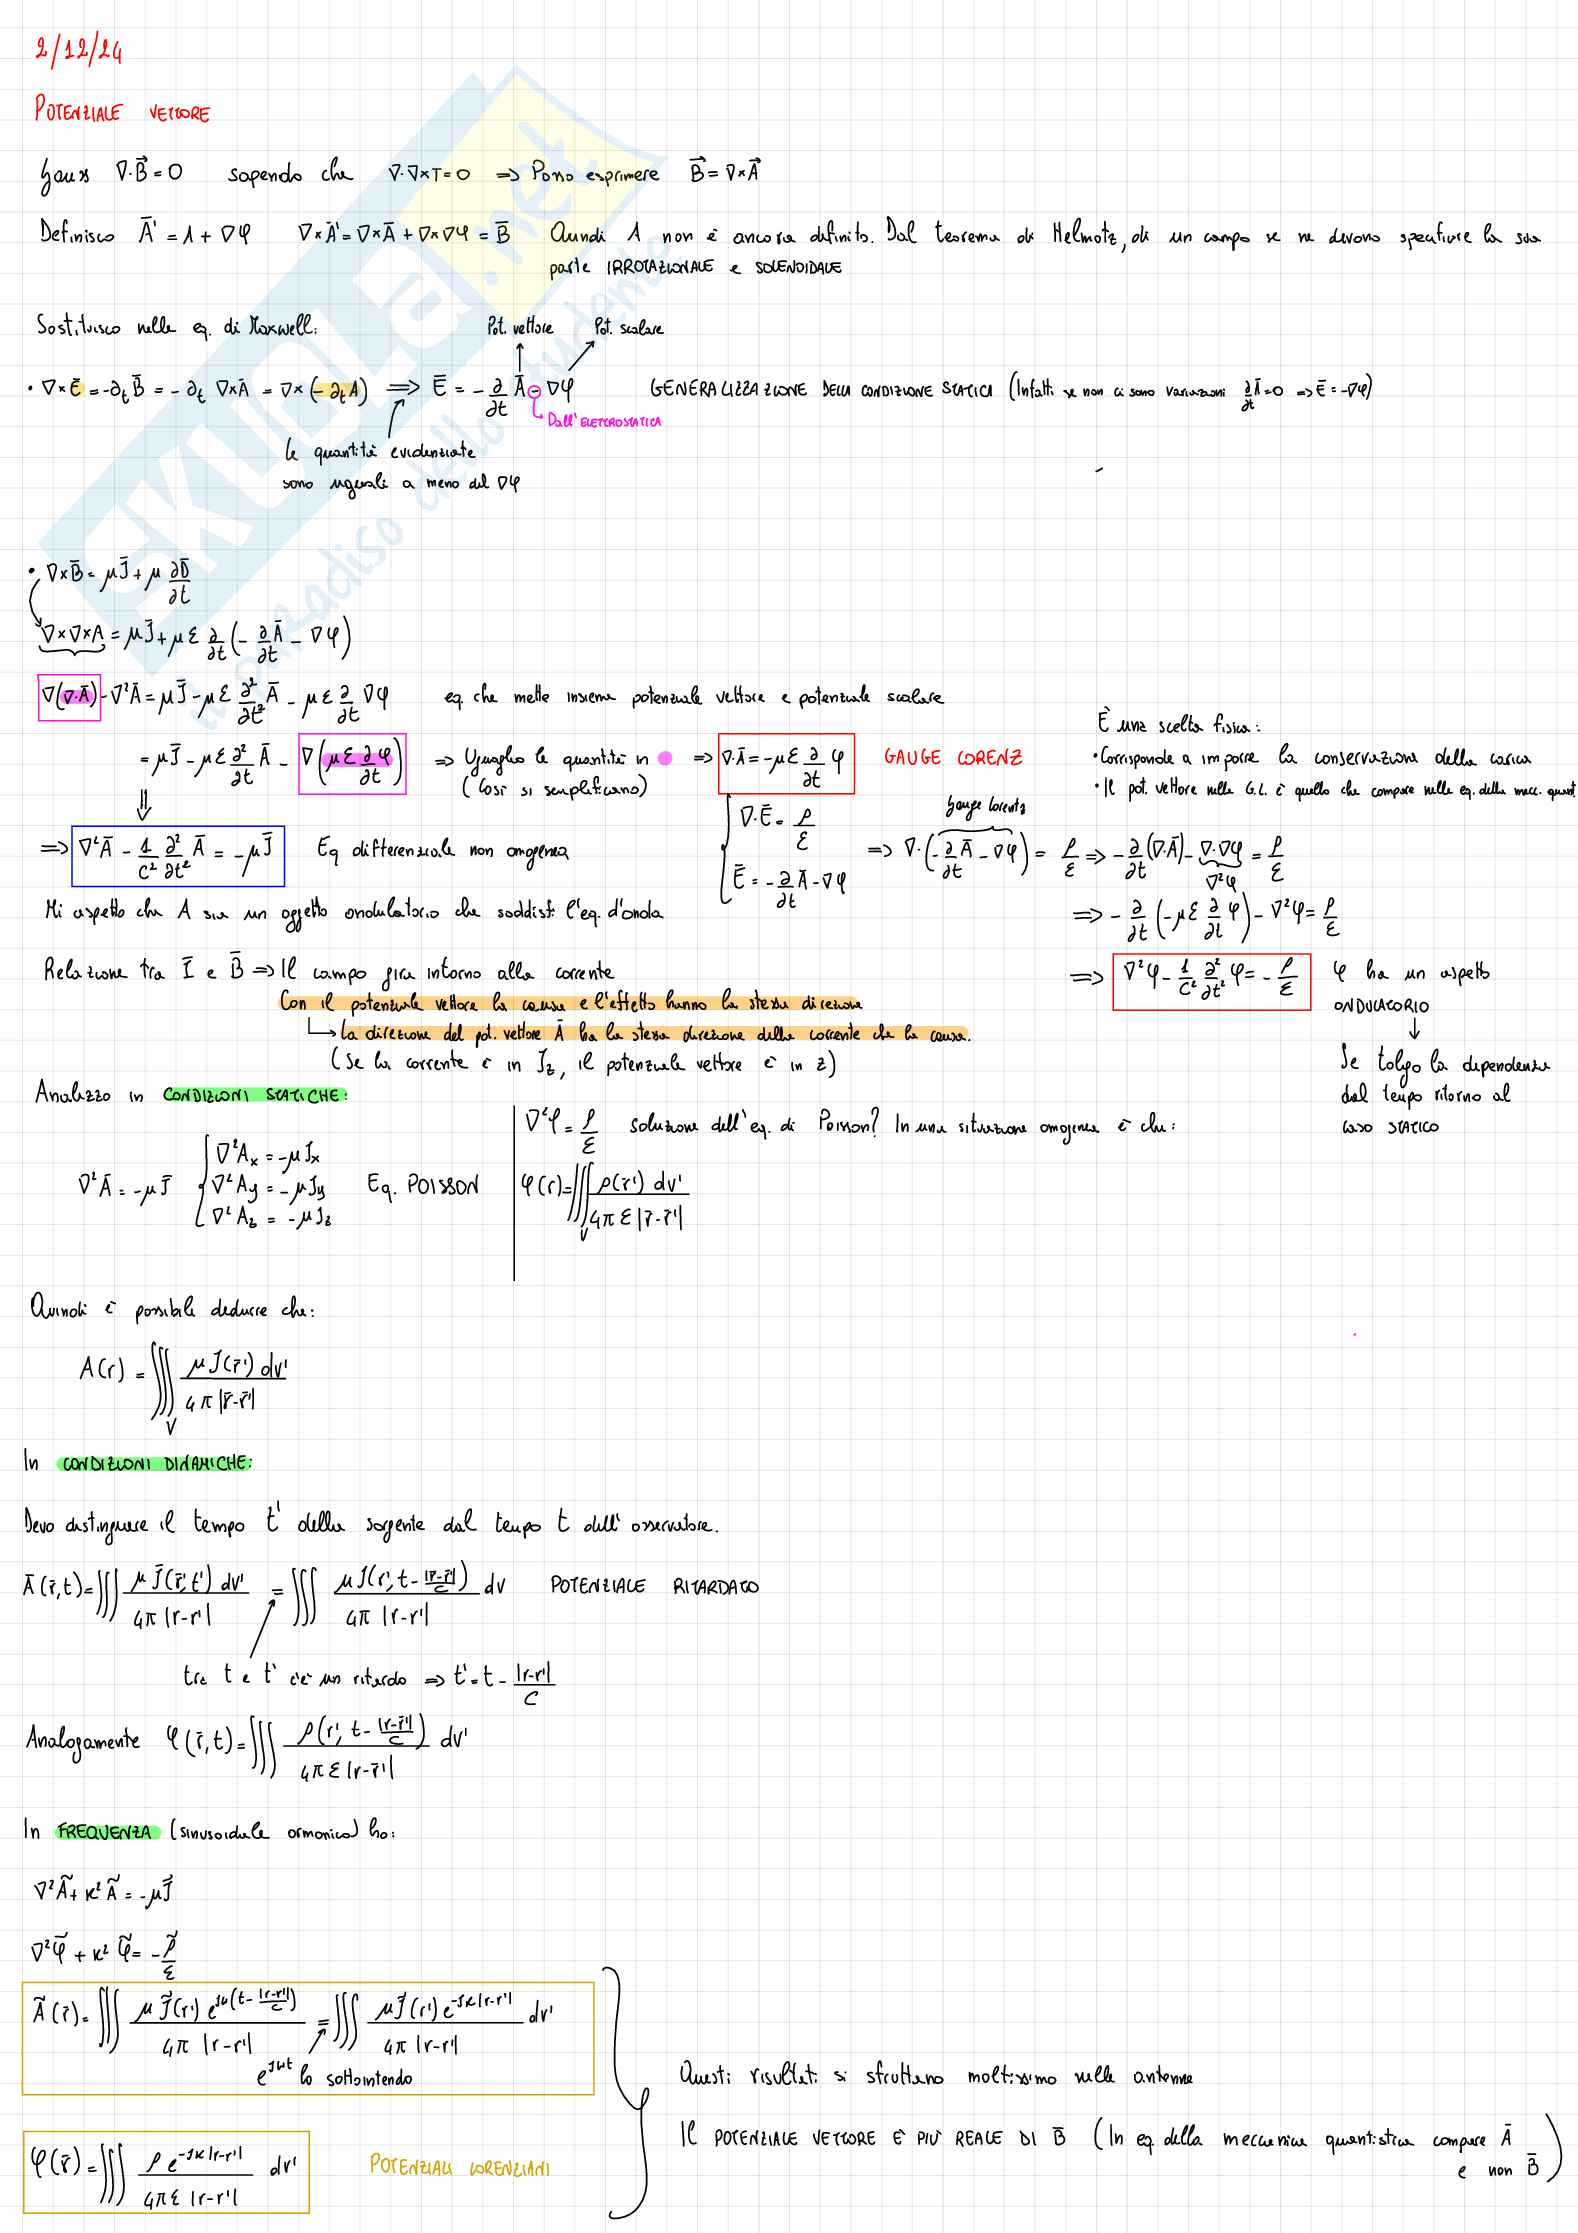 2/12/24
POTENZIALE VETTORE
Gauss ∇·B⃗=0 sapendo che ∇·∇×T=0 ⇒ Posso esprimere B⃗=∇×A⃗
Definisco Ā'=A+∇φ ∇×Ā'=∇×Ā+∇×∇φ=B̄ Quindi A non è ancora definito. Dal teorema di Helmotz, di un campo se ne devono specificare la sua
parte IRROTAZIONALE e SOLENOIDALE
Sostituisco nelle eq. di Maxwell:
Pot. vettore Pot. scalare
• ∇×Ē=-∂t B̄ = -∂t ∇×Ā = ∇×(-∂t A) ⇒ Ē = -∂/∂t Ā - ∇φ GENERALIZZAZIONE DELLA CONDIZIONE STATICA (Infatti se non ci sono variazioni ∂/∂t Ā=0 ⇒ Ē=-∇φ)
Dall'ELETTROSTATICA
le quantità evidenziate
sono uguali a meno del ∇φ
• ∇×B̄ = μJ̄ + μ ∂D̄/∂t
∇×∇×A = μJ̄ + με ∂/∂t (-∂/∂t Ā - ∇φ)
∇(∇·Ā) - ∇²Ā = μJ̄ - με ∂²/∂t² Ā - με ∂/∂t ∇φ eq. che mette insieme potenziale vettore e potenziale scalare
= μJ̄ - με ∂²/∂t Ā - ∇(με ∂φ/∂t) ⇒ Uguaglio le quantità in ⇒ ∇·Ā = -με ∂/∂t φ GAUGE LORENZ
(Così si semplificano)
È una scelta fisica:
• Corrisponde a imporre la conservazione della carica
• Il pot. vettore nelle G.L. è quello che compare nelle eq. della mecc. quant.
⇒ ∇²Ā - 1/c² ∂²/∂t² Ā = -μJ̄ Eq differenziale non omogenea
∇·Ē = ρ/ε
Ē = -∂/∂t Ā - ∇φ
Gauge Lorentz
⇒ ∇·(-∂Ā/∂t - ∇φ) = ρ/ε ⇒ -∂/∂t (∇·Ā) - ∇·∇φ = ρ/ε
∇²φ
⇒ -∂/∂t (-με ∂/∂t φ) - ∇²φ = ρ/ε
⇒ ∇²φ - 1/c² ∂²/∂t² φ = -ρ/ε φ ha un aspetto
ONDULATORIO
Se tolgo la dipendenza
dal tempo ritorno al
caso STATICO
Mi aspetto che A sia un oggetto ondulatorio che soddisf. l'eq. d'onda
Relazione tra Ī e B̄ ⇒ Il campo gira intorno alla corrente
Con il potenziale vettore la causa e l'effetto hanno la stessa direzione
La direzione del pot. vettore Ā ha la stessa direzione della corrente che la causa.
(Se la corrente è in Jz, il potenziale vettore è in z)
Analizzo in CONDIZIONI STATICHE:
∇²Ā = -μJ̄
∇²Ax = -μJx
∇²Ay = -μJy
∇²Az = -μJz
Eq. POISSON
∇²φ = ρ/ε soluzione dell'eq. di Poisson? In una situazione omogenea è che:
φ(r) = ∭V ρ(r̄') dv' / 4πε|r̄-r̄'|
Quindi è possibile dedurre che:
A(r) = ∭V μJ(r̄') dv' / 4π|r̄-r̄'|
In CONDIZIONI DINAMICHE:
Devo distinguere il tempo t' della sorgente dal tempo t dell'osservatore.
Ā(r̄,t) = ∭ μJ̄(r̄',t') dv' / 4π|r-r'| = ∭ μJ(r', t-|r̄-r̄'|/c) / 4π|r-r'| dv POTENZIALE RITARDATO
tra t e t' c'è un ritardo ⇒ t' = t - |r-r'|/c
Analogamente φ(r̄,t) = ∭ ρ(r', t-|r-r̄'|/c) / 4πε|r-r̄'| dv'
In FREQUENZA (sinusoidale armonico) ho:
∇²Ã + k²Ã = -μJ̃
∇²φ̃ + k²φ̃ = -ρ̃/ε
Ã(r̄) = ∭ μJ̃(r') e^{jω(t-|r-r'|/c)} / 4π|r-r'| = ∭ μJ̃(r') e^{-jk|r-r'|} / 4π|r-r'| dv'
e^{jωt} lo sottointendo
φ(r̄) = ∭ ρ e^{-jk|r-r'|} / 4πε|r-r'| dv' POTENZIALI LORENZIANI
Questi risultati si sfruttano moltissimo nelle antenne
Il POTENZIALE VETTORE È PIÙ REALE DI B̄ (In eq. della meccanica quantistica compare Ā
e non B̄)